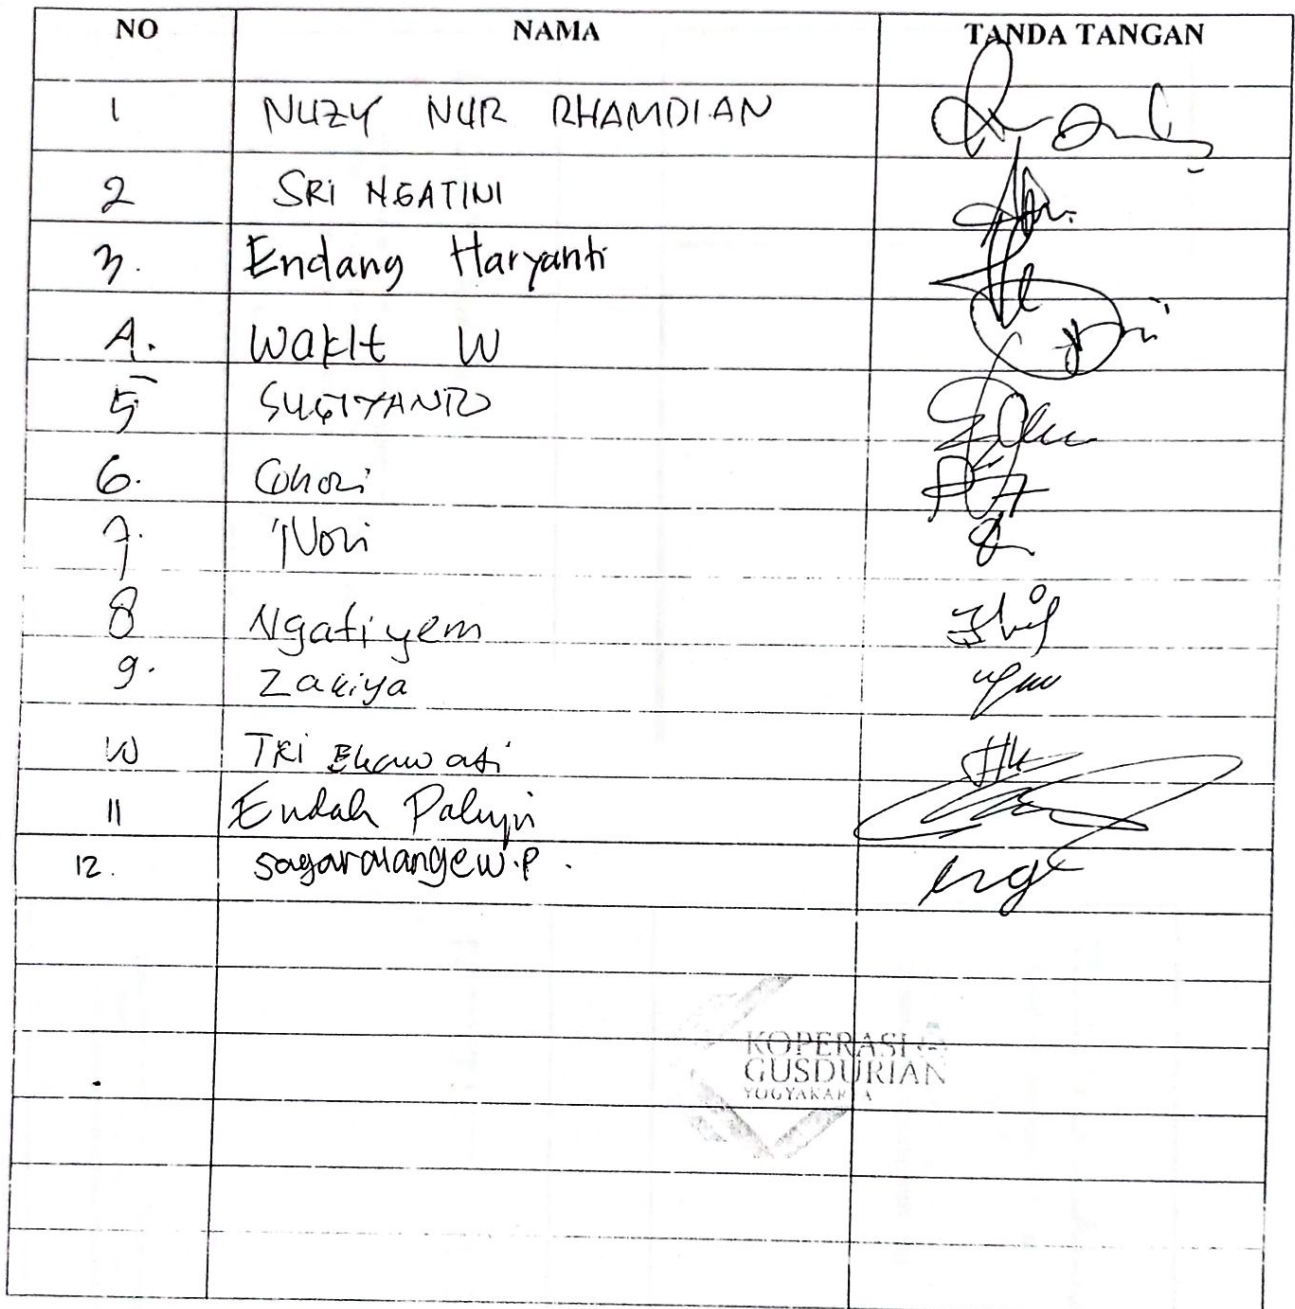 NO NAMA TANDA TANGAN
1 NUZY NUR RHAMDIAN
2 SRI NGATINI
3. Endang Haryanti
4. Wakit W
5 SUGIYANTO
6. Cohori
7. Nori
8 Ngatiyem
9. Zakiya
10 TRI Ekawati
11 Endah Palupi
12.
KOPERASI
GUSDURIAN
YOGYAKARTA